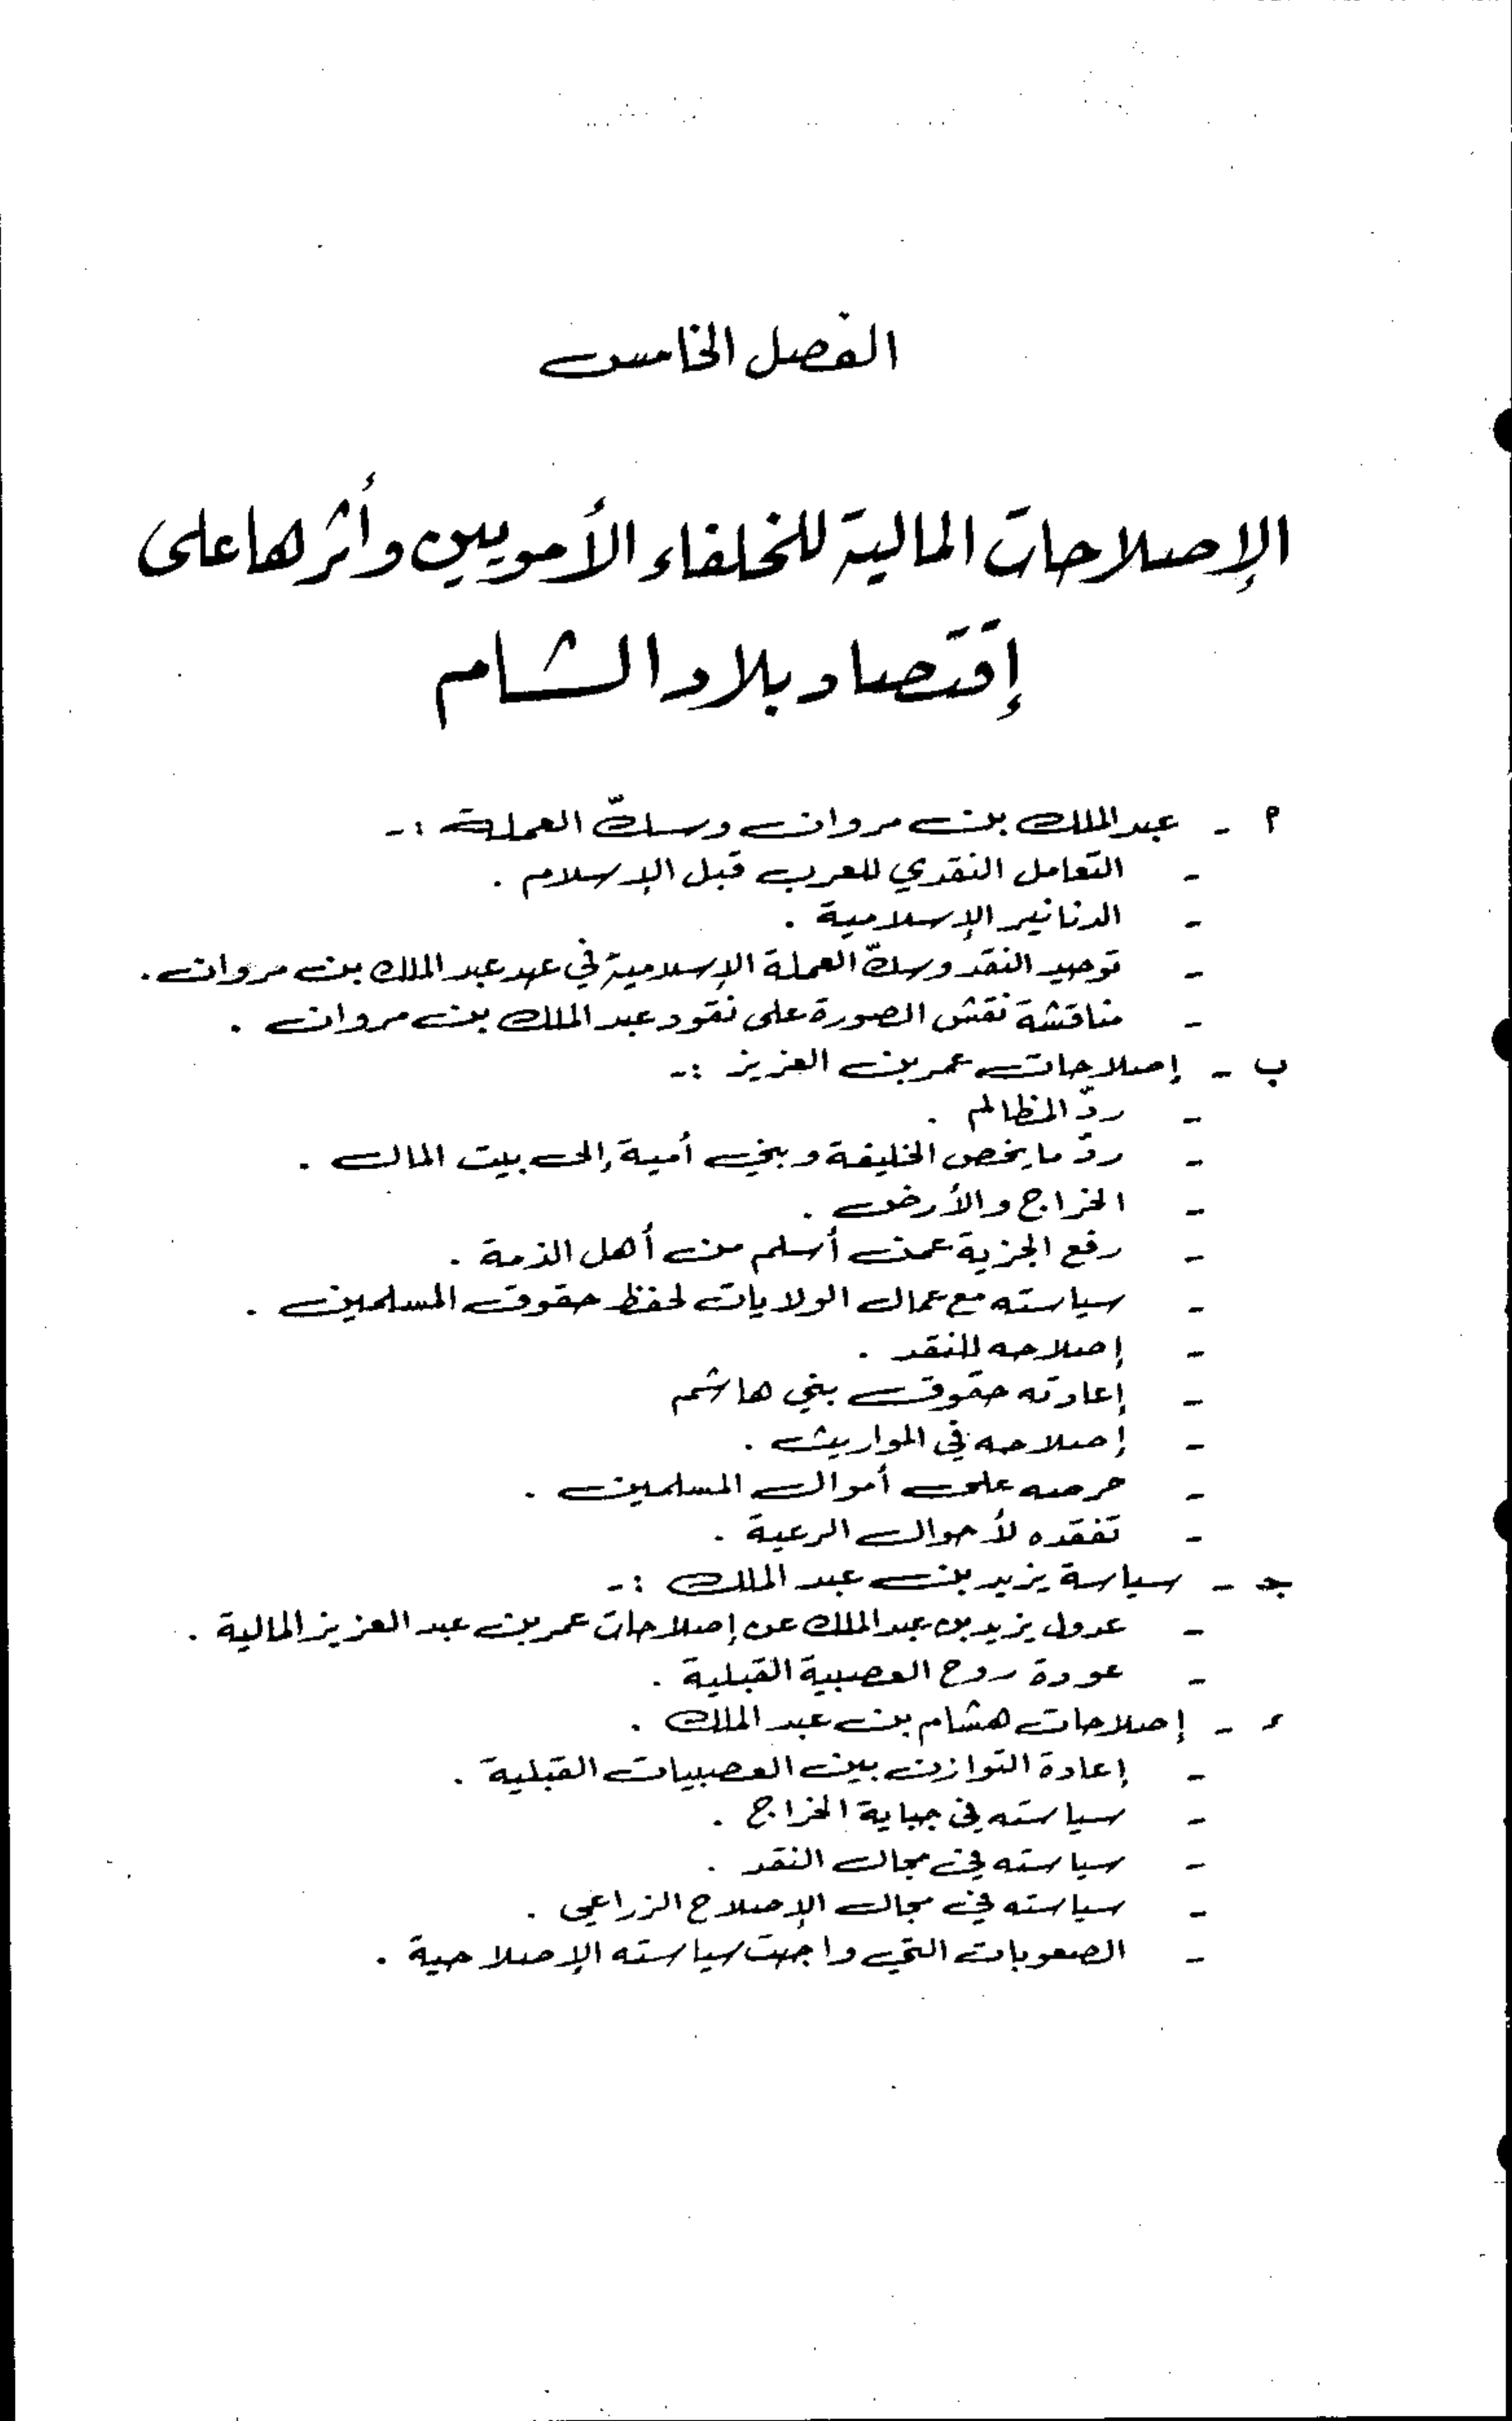 الفصل الخامس
الإصلاحات المالية للخلفاء الأمويين وأثرها على
إقتصاد بلاد الشام
أ - عبد الملك بن مروان وسكّ العملة :-
- التعامل النقدي للعرب قبل الإسلام .
- الدنانير الإسلامية .
- توحيد النقد وسكّ العملة الإسلامية في عهد عبد الملك بن مروان .
- مناقشة نقش الصورة على نقود عبد الملك بن مروان .
ب - إصلاحات عمر بن العزيز :-
- ردّ المظالم .
- ردّ ما يخص الخليفة وبني أمية إلى بيت المال .
- الخراج والأرض .
- رفع الجزية عمن أسلم من أهل الذمة .
- سياسته مع عمال الولايات لحفظ حقوق المسلمين .
- إصلاحه للنقد .
- إعادته حقوق بني هاشم
- إصلاحه في المواريث .
- حرصه على أموال المسلمين .
- تفقده لأحوال الرعية .
جـ - سياسة يزيد بن عبد الملك :-
- عدول يزيد بن عبد الملك عن إصلاحات عمر بن عبد العزيز المالية .
- عودة روح العصبية القبلية .
د - إصلاحات هشام بن عبد الملك .
- إعادة التوازن بين العصبيات القبلية .
- سياسته في جباية الخراج .
- سياسته في مجال النقد .
- سياسته في مجال الإصلاح الزراعي .
- الصعوبات التي واجهت سياسته الإصلاحية .